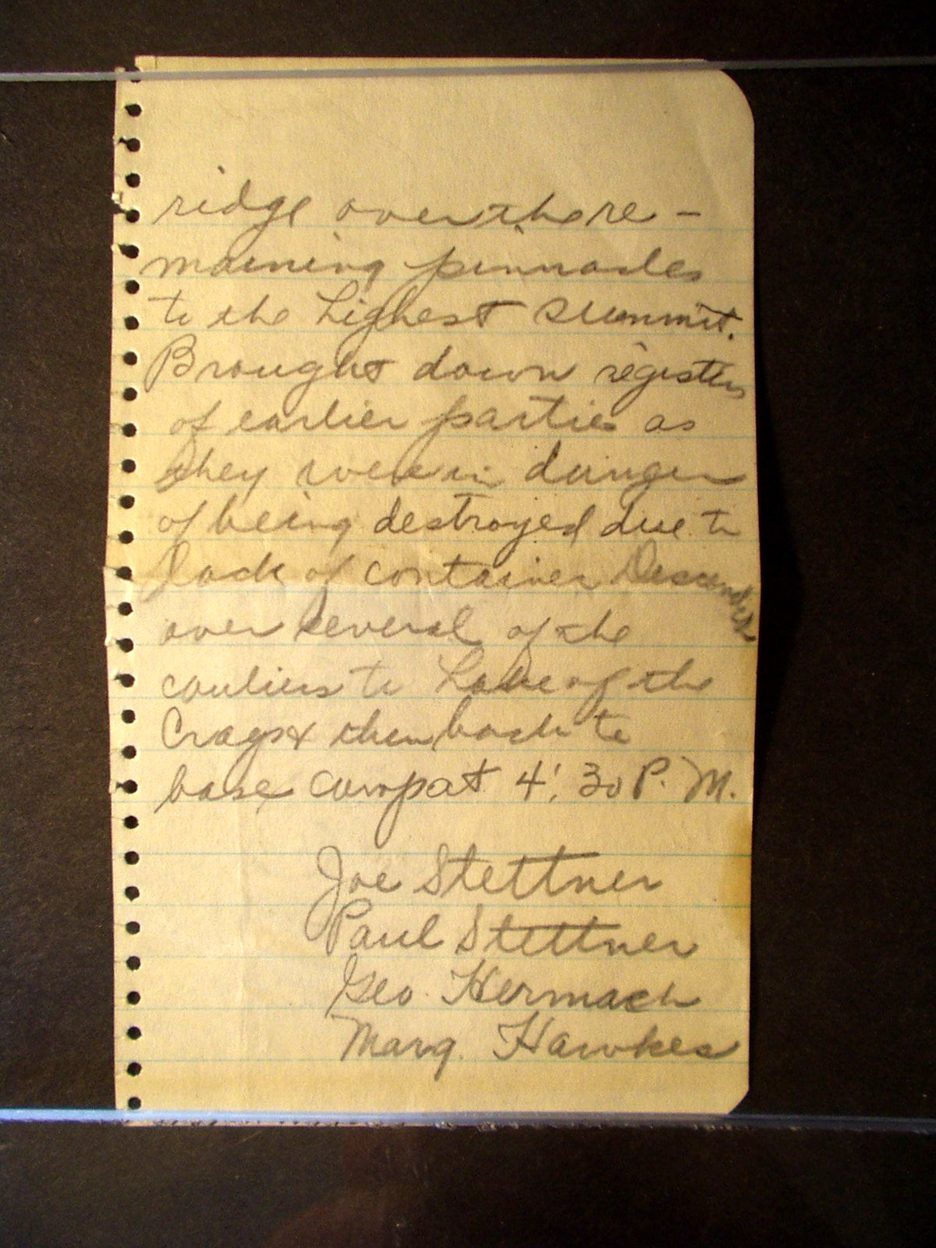 ridge over the re-
maining pinnacles
to the highest summit.
Brought down registers
of earlier parties as
they were in danger
of being destroyed due to
lack of container Descended
over several of the
couliers to base of the
Crags & then back to
base camp at 4:30 P.M.
Joe Stettner
Paul Stettner
Geo. Hermach
Marg. Hawkes